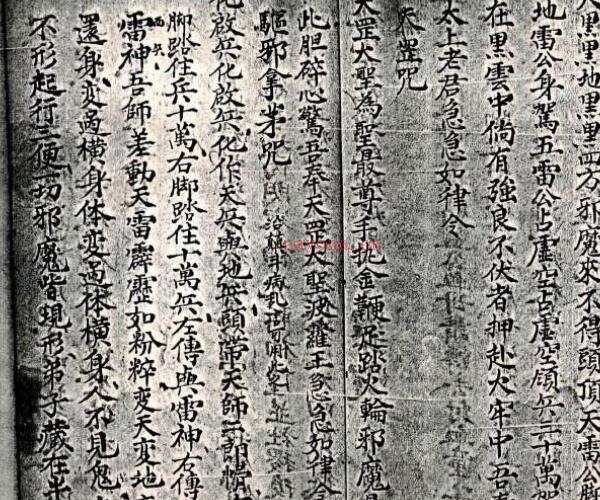 天黑黑地黑黑五方邪魔來不得頭頂天雷公脚
地雷公身駕五雷公占虛空占虛空領兵三十萬
在黑雲中倘有強良不伏者押赴火牢中吾
太上老君急急如律令
天罡咒
天罡大聖為聖最尊手執金鞭足踏火輪邪魔
此胆碎心驚吾奉天罡大聖波羅王急急如律令
驅邪拿茅咒
化啟兵化啟兵化作天兵與地兵頭帶天師二郎
脚踏住兵十萬右脚踏住十萬兵左傳與雷神右傳
雷神吾師差動天雷霹靂如粉粹变天变地
還身变過橫身体变過体橫身人不見鬼
不形起行三便一切邪魔皆現形弟子藏在
nayona.cn